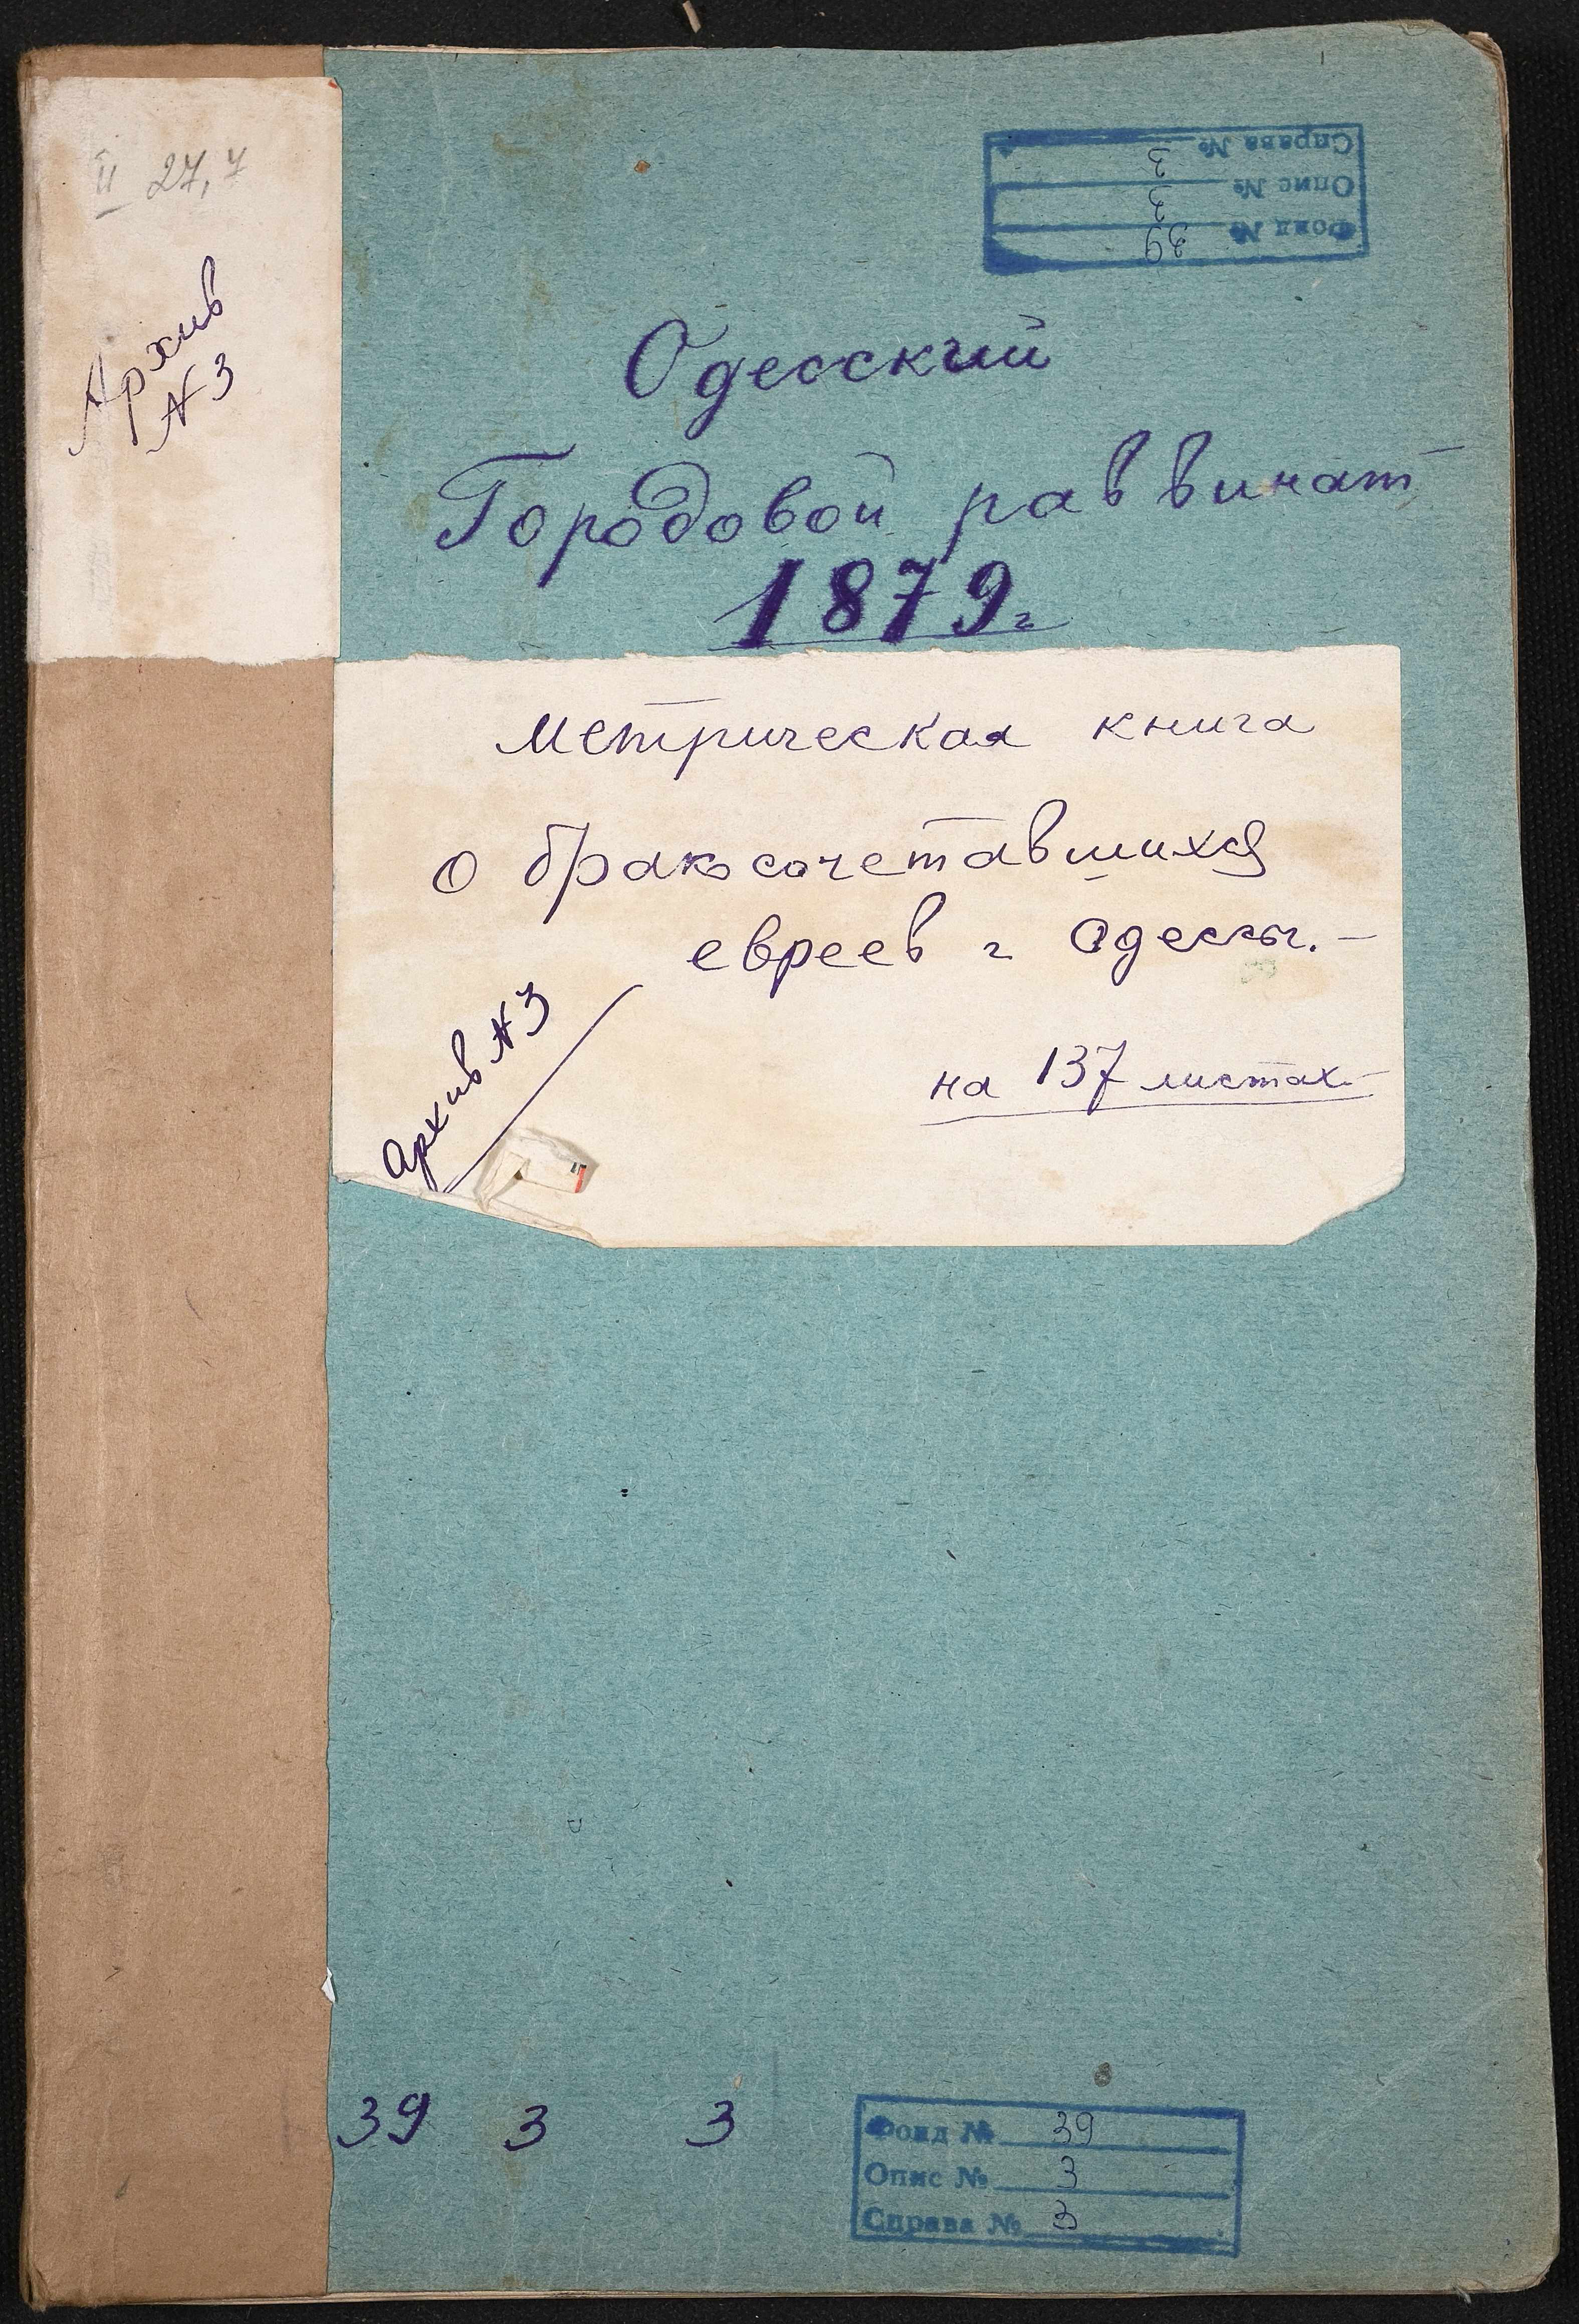 II 27,7
Архив
N 3
Справа № 3
Опис № 3
Фонд № 39
Одесский
Городовой раввинат
1879г
Метрическая книга
о бракосочетавшихся
евреев г Одессы.-
Архив N 3
на 137 листах-
39 3 3
Фонд № 39
Опис № 3
Справа № 3